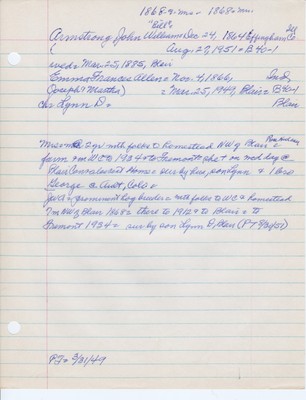 1868-9-mo - 1868-o-mw.
"Bill" Ill
Armstrong John Williams Dec 24, 1864 Effingham Co
Aug. 27, 1951 - B 40-1
wed Mar. 25, 1885, Blair
Emma Frances Allen = Nov. 4, 1866, Ind.
Joseph? Martha) = Mar. 25, 1949, Blair = B 40-1
ch Lynn D. Blair
2 yr with folks to homestead NW of Blair
farm WC to 1934 to Fremont
Blair Convalescent Home = surv by hus, son Lynn & 1 bro
George Ault, Colo
prominent hog breeder = with folks to WC homestead
NW of Blair 1868 = there to 1912 to Blair = to
Fremont 1934 = surv by son Lynn D, Blair (PT 8/30/51)
PT= 3/31/49